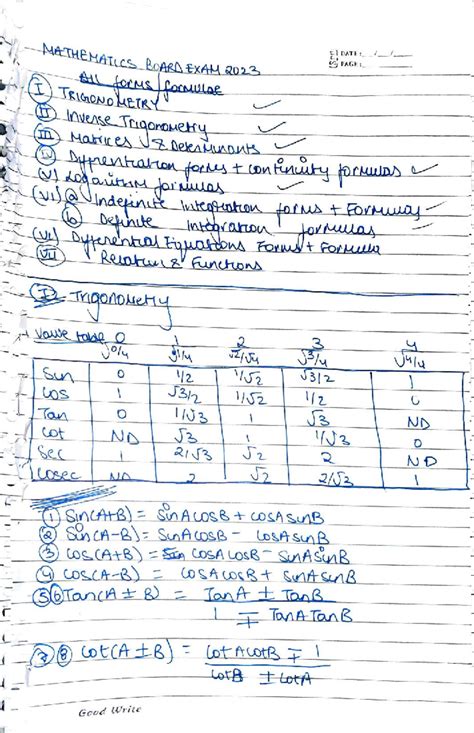 DATE: / /
PAGE:
MATHEMATICS BOARD EXAM 2023
All forms / formulae
I TRIGONOMETRY ✓
II Inverse Trigonometry ✓
III Matrices & Determinants ✓
IV Differentiation forms + continuity formulas ✓
V) Logarithm formulas ✓
(VI) a Indefinite Integration forms + Formulas ✓
b Definite Integration formulas
(VI) Differential Equations Forms + Formula
VII Relation & Functions
I Trigonometry
Value table 0 1 2 3 4
√0/4 √1/4 √2/√4 √3/4 √4/4
Sin 0 1/2 1/√2 √3/2 1
Cos 1 √3/2 1/√2 1/2 0
Tan 0 1/√3 1 √3 ND
Cot ND √3 1 1/√3 0
Sec 1 2/√3 √2 2 ND
Cosec ND 2 √2 2/√3 1
① Sin(A+B) = SinA cosB + cosA sinB
② Sin(A-B) = SinA cosB - cosA sinB
③ cos(A+B) = cosA cosB - sinA sinB
④ cos(A-B) = cosA cosB + sinA sinB
⑤⑥ Tan(A ± B) = TanA ± TanB
1 ∓ TanA TanB
⑦⑧ cot(A ± B) = cotA cotB ∓ 1
cotB ± cotA
Good Write